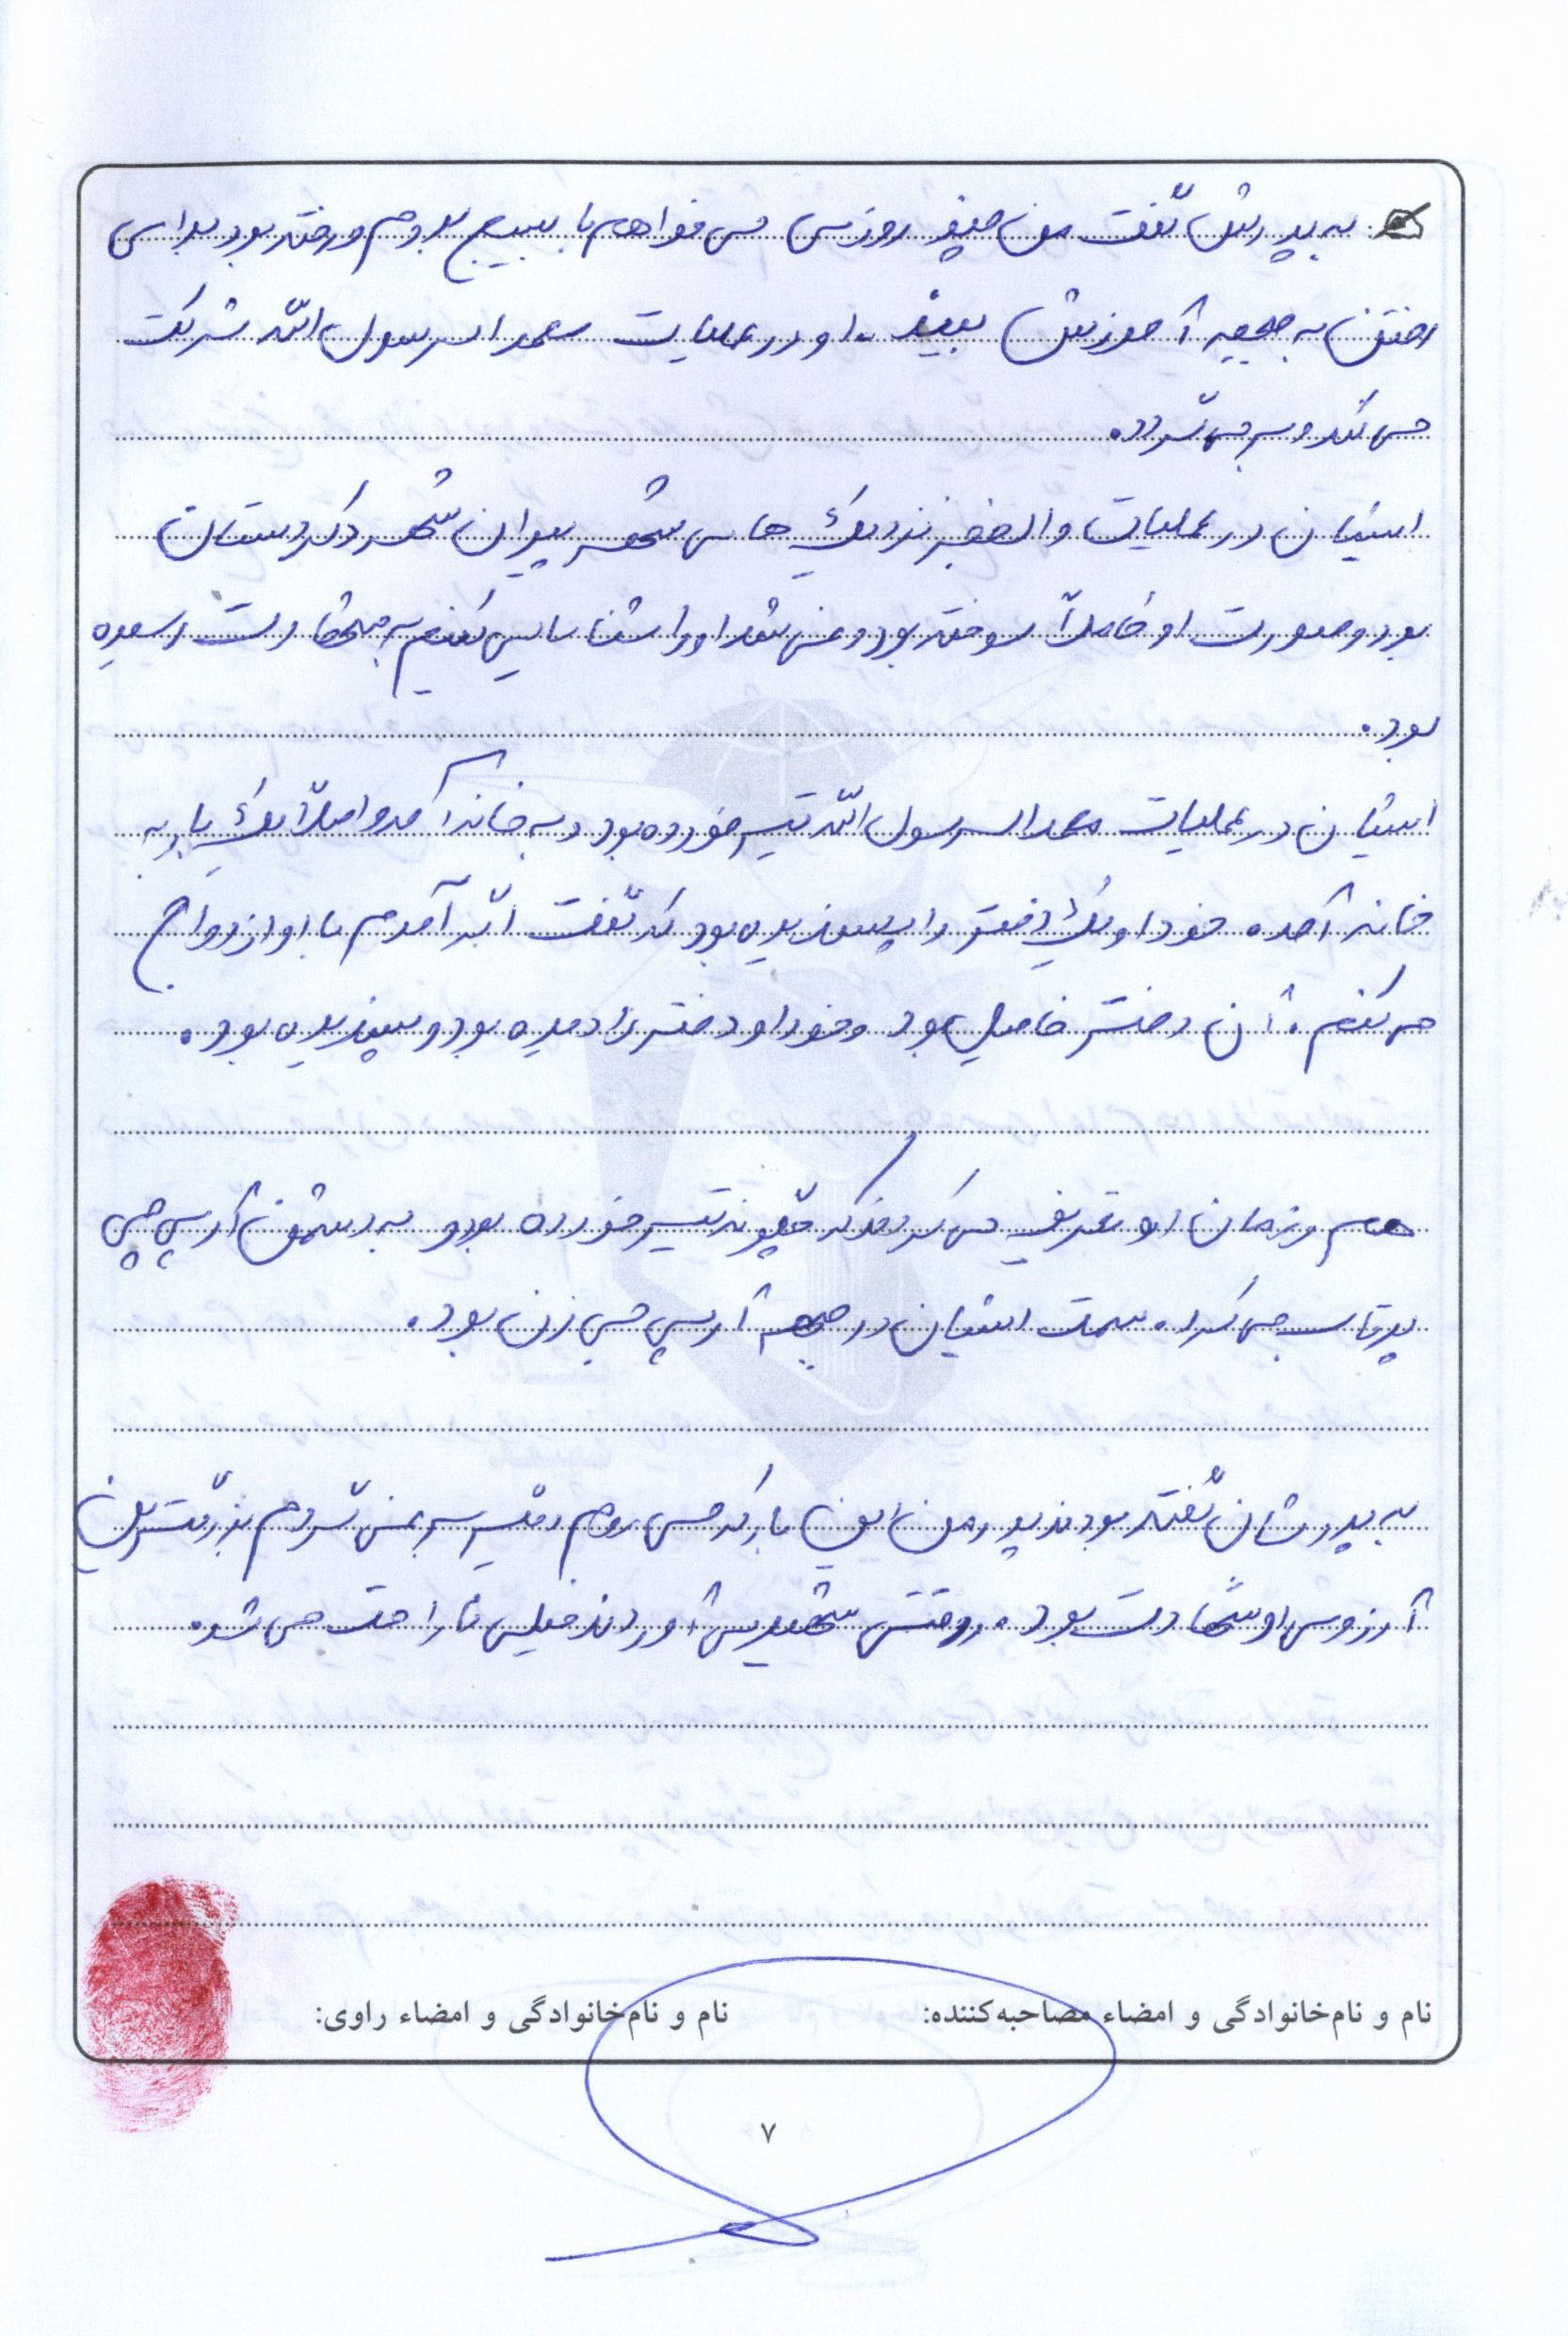 به پدرش گفت من چند روزی می خواهم با بسیج بروم و رفته بود برای
رفتن به جبهه آموزش ببیند. او در عملیات محمد الرسول الله شرکت
می کند و بر می گردد.
ایشان در عملیات والفجر نزدیک های شهر پیران شهر کردستان
بود و صورت او کاملاً سوخته بود و نمی شد او را شناسایی کنیم به شهادت رسیده
بود.
ایشان در عملیات محمد الرسول الله تیر خورده بود و به خانه آمد و اصلاً یک بار به
خانه آمده خود او یک دختر را پسندیده بود که گفت اگر آمدم با او ازدواج
می کنم. آن دختر فامیل بود و خود او دختر را دیده بود و پسندیده بود.
هم رزمان او تعریف می کردند که چگونه تیر خورده بود و به دشمن آر پی جی
پرتاب می کرد. سمت ایشان در جبهه آر پی جی زن بود.
به پدرشان گفته بودند پدر من این بار که می روم دیگر بر نمی گردم بزرگترین
آرزوی او شهادت بود. وقتی شهید می آوردند خیلی ناراحت می شد.
نام و نام‌خانوادگی و امضاء مصاحبه‌کننده: نام و نام‌خانوادگی و امضاء راوی:
۷